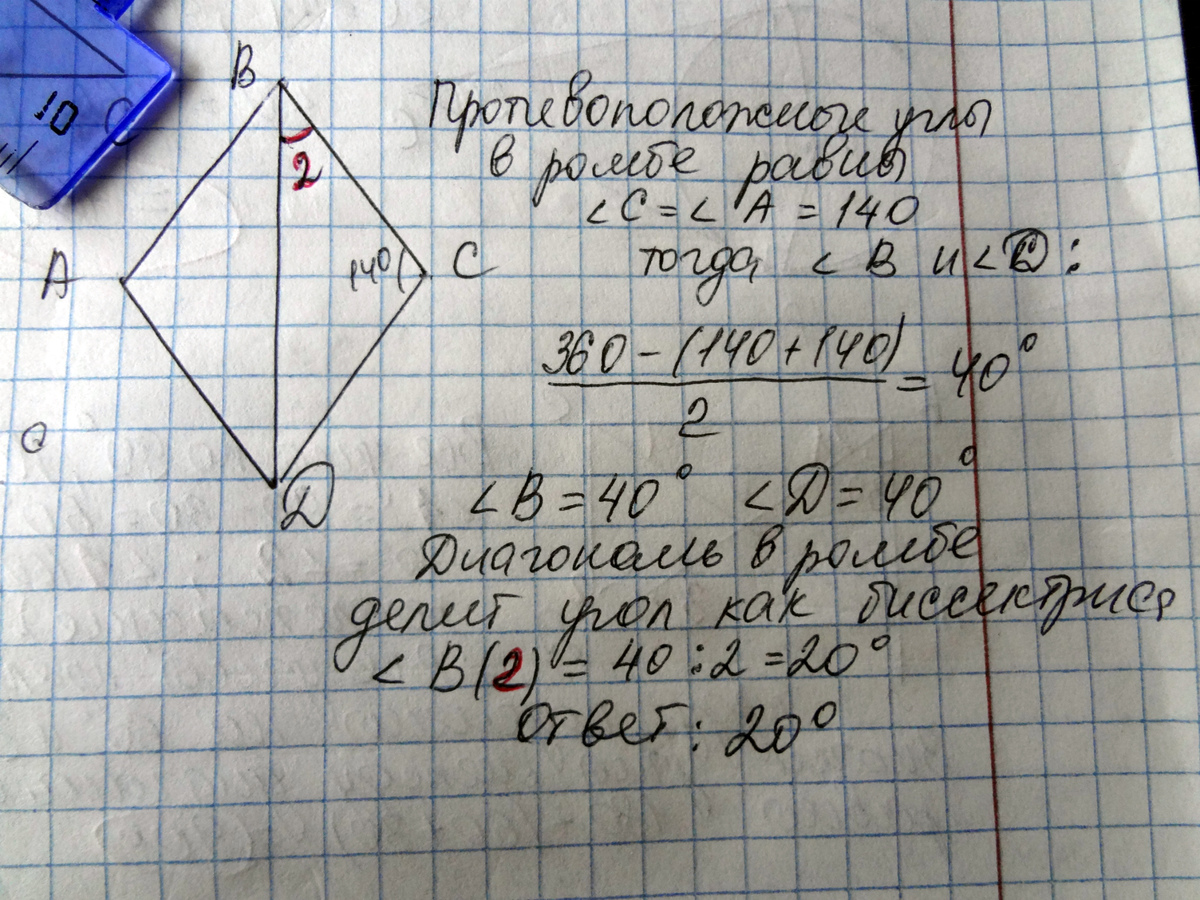 10
B
2
A
140
C
D
Противоположные углы
в ромбе равны
<C=< A = 140
тогда < B и <D:
360-(140+140)
2
= 40°
<B=40° <D=40°
Диагональ в ромбе
делит угол как биссектриса
< B(2) = 40:2=20°
Ответ: 20°